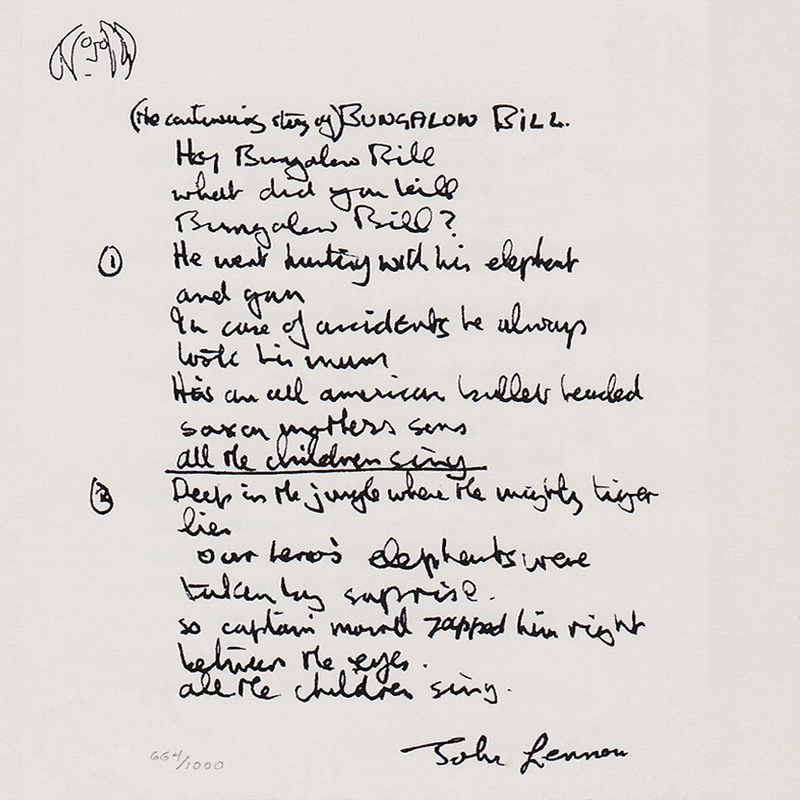 (the continuing story of) BUNGALOW BILL.
Hey Bungalow Bill
what did you kill
Bungalow Bill?
① He went hunting with his elephant
and gun
In case of accidents he always
took his mum
He's an all american bullet headed
saxon mothers sons
all the children sing
② Deep in the jungle where the mighty tiger
lies
our hero's elephants were
taken by suprise.
so captain marvel zapped him right
between the eyes.
all the children sing.
John Lennon
664/1000